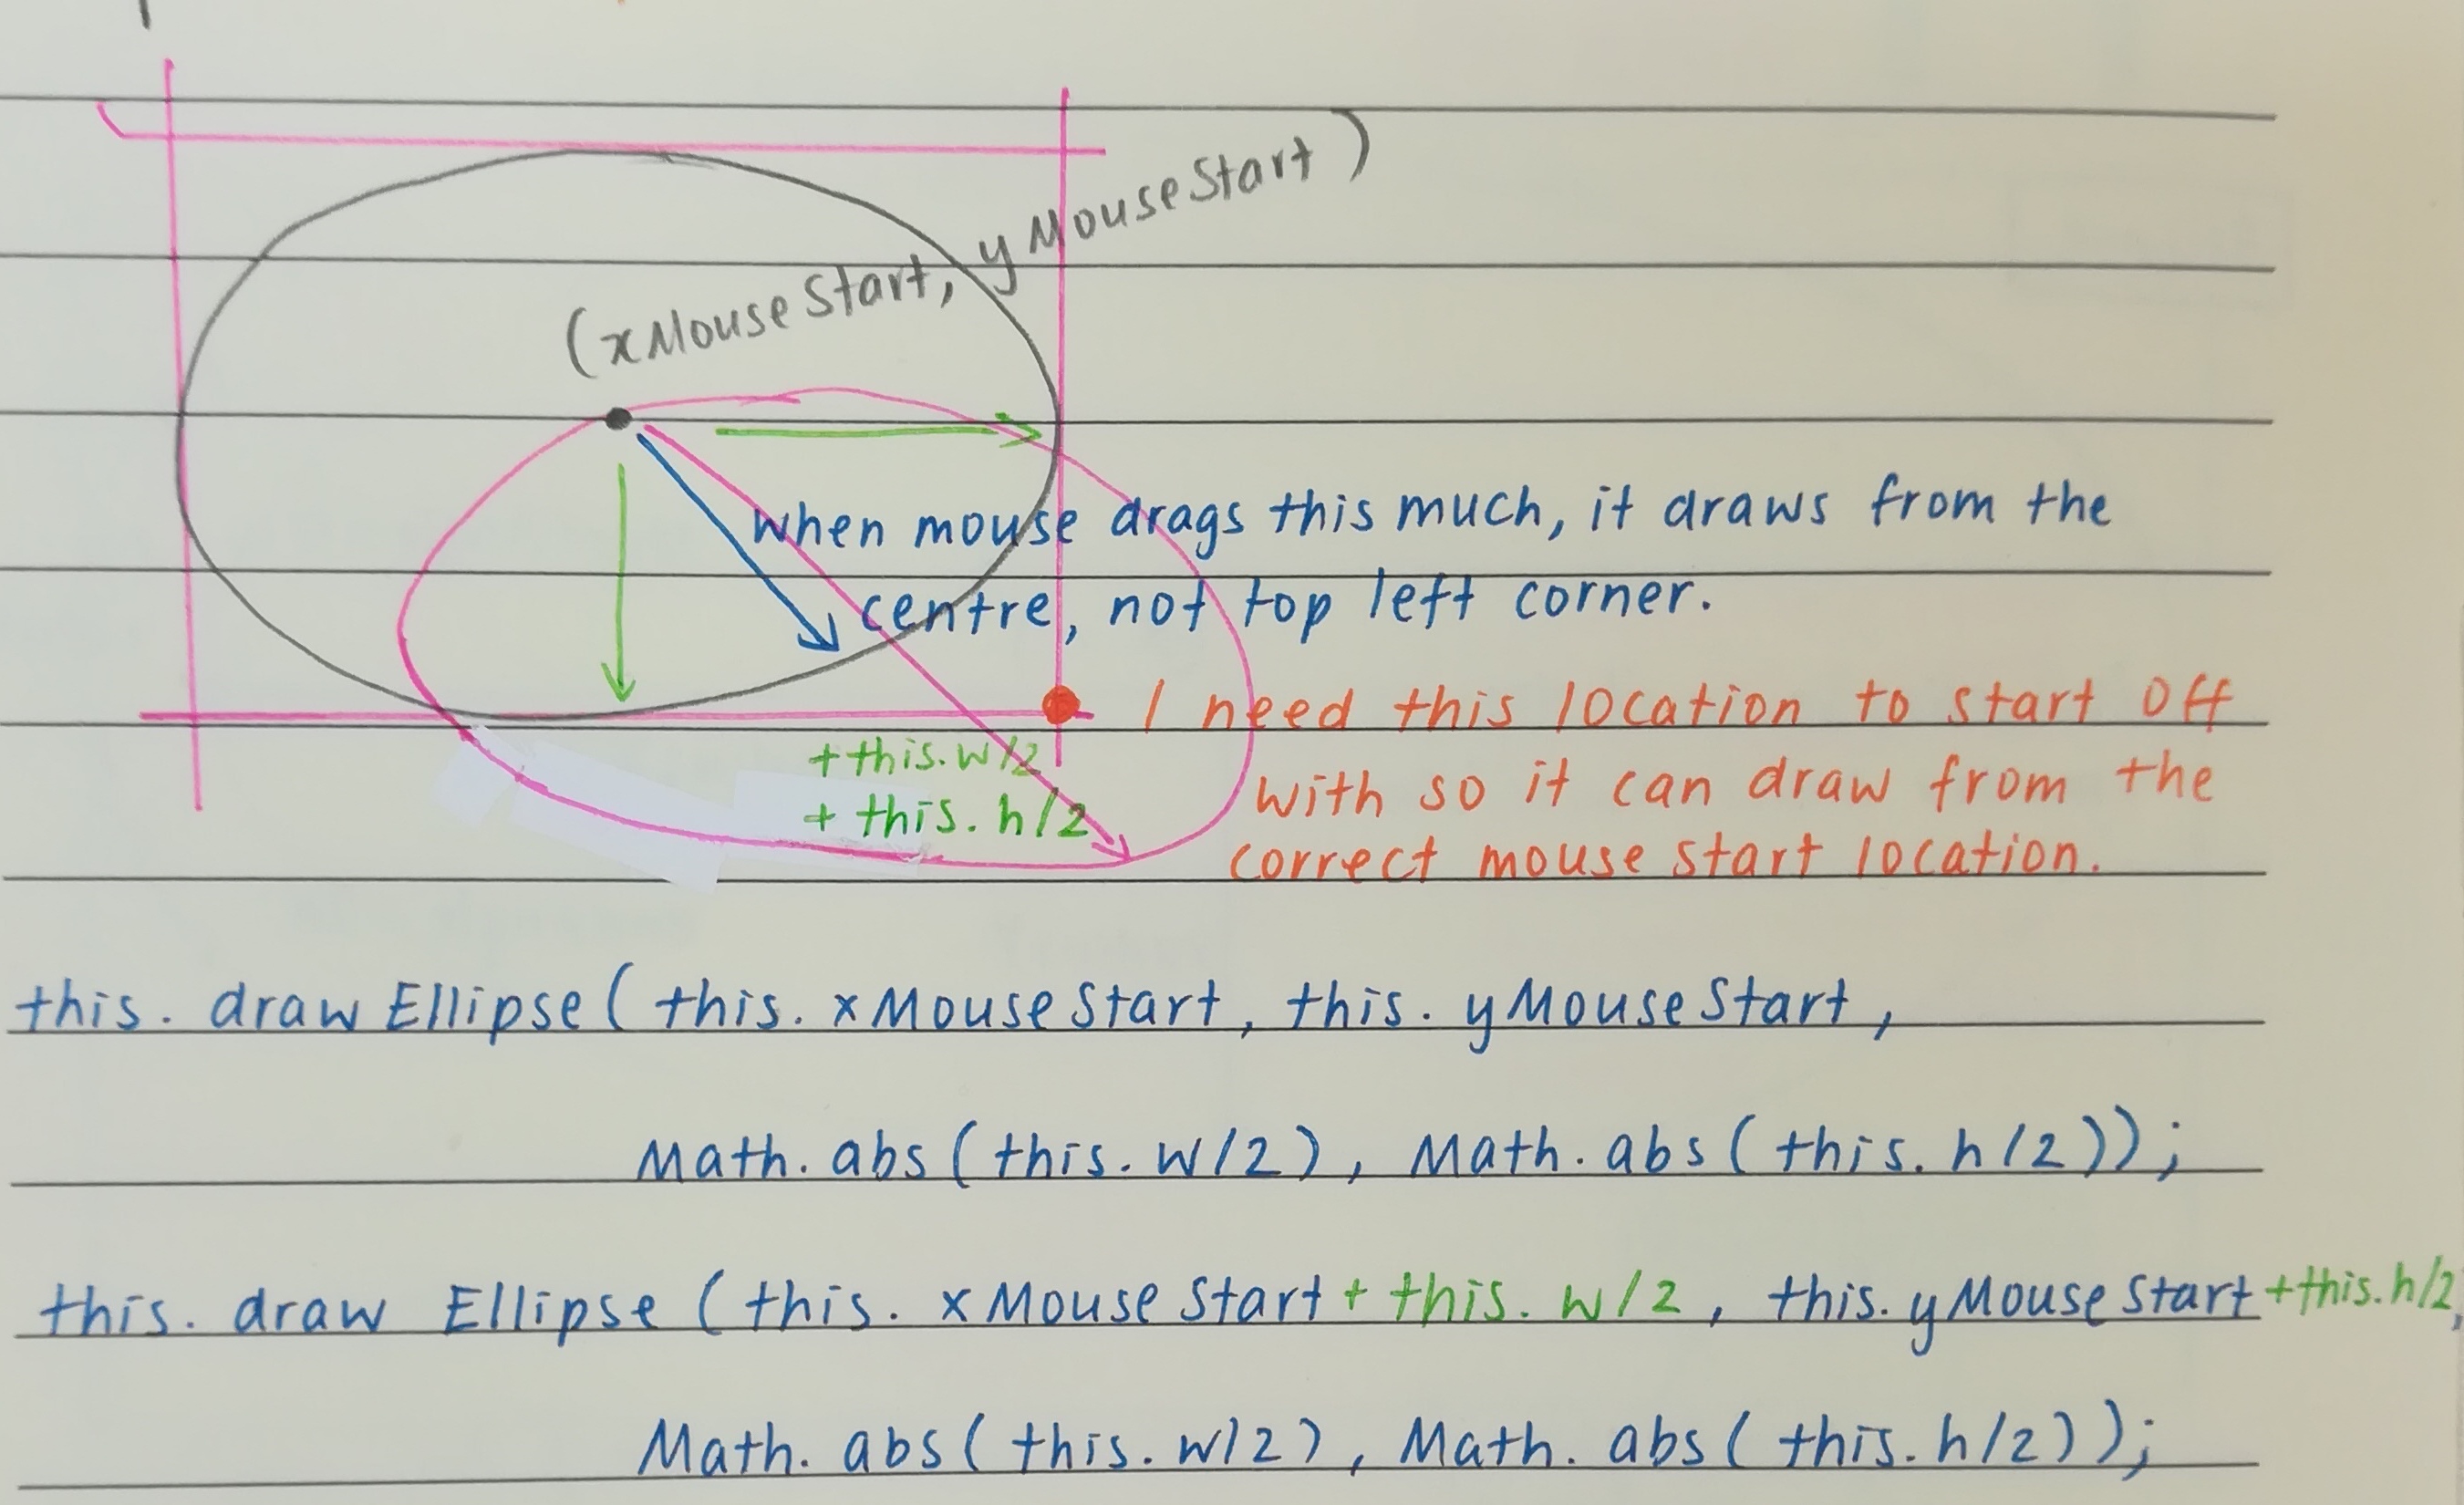 (xMouseStart, yMouseStart)
When mouse drags this much, it draws from the
centre, not top left corner.
I need this location to start off
+this.w/2
with so it can draw from the
+ this.h/2
correct mouse start location.
this.drawEllipse(this.xMouseStart, this.yMouseStart,
Math.abs(this.w/2), Math.abs(this.h/2));
this.drawEllipse(this.xMouseStart + this.w/2, this.yMouseStart +this.h/2,
Math.abs(this.w/2), Math.abs(this.h/2));